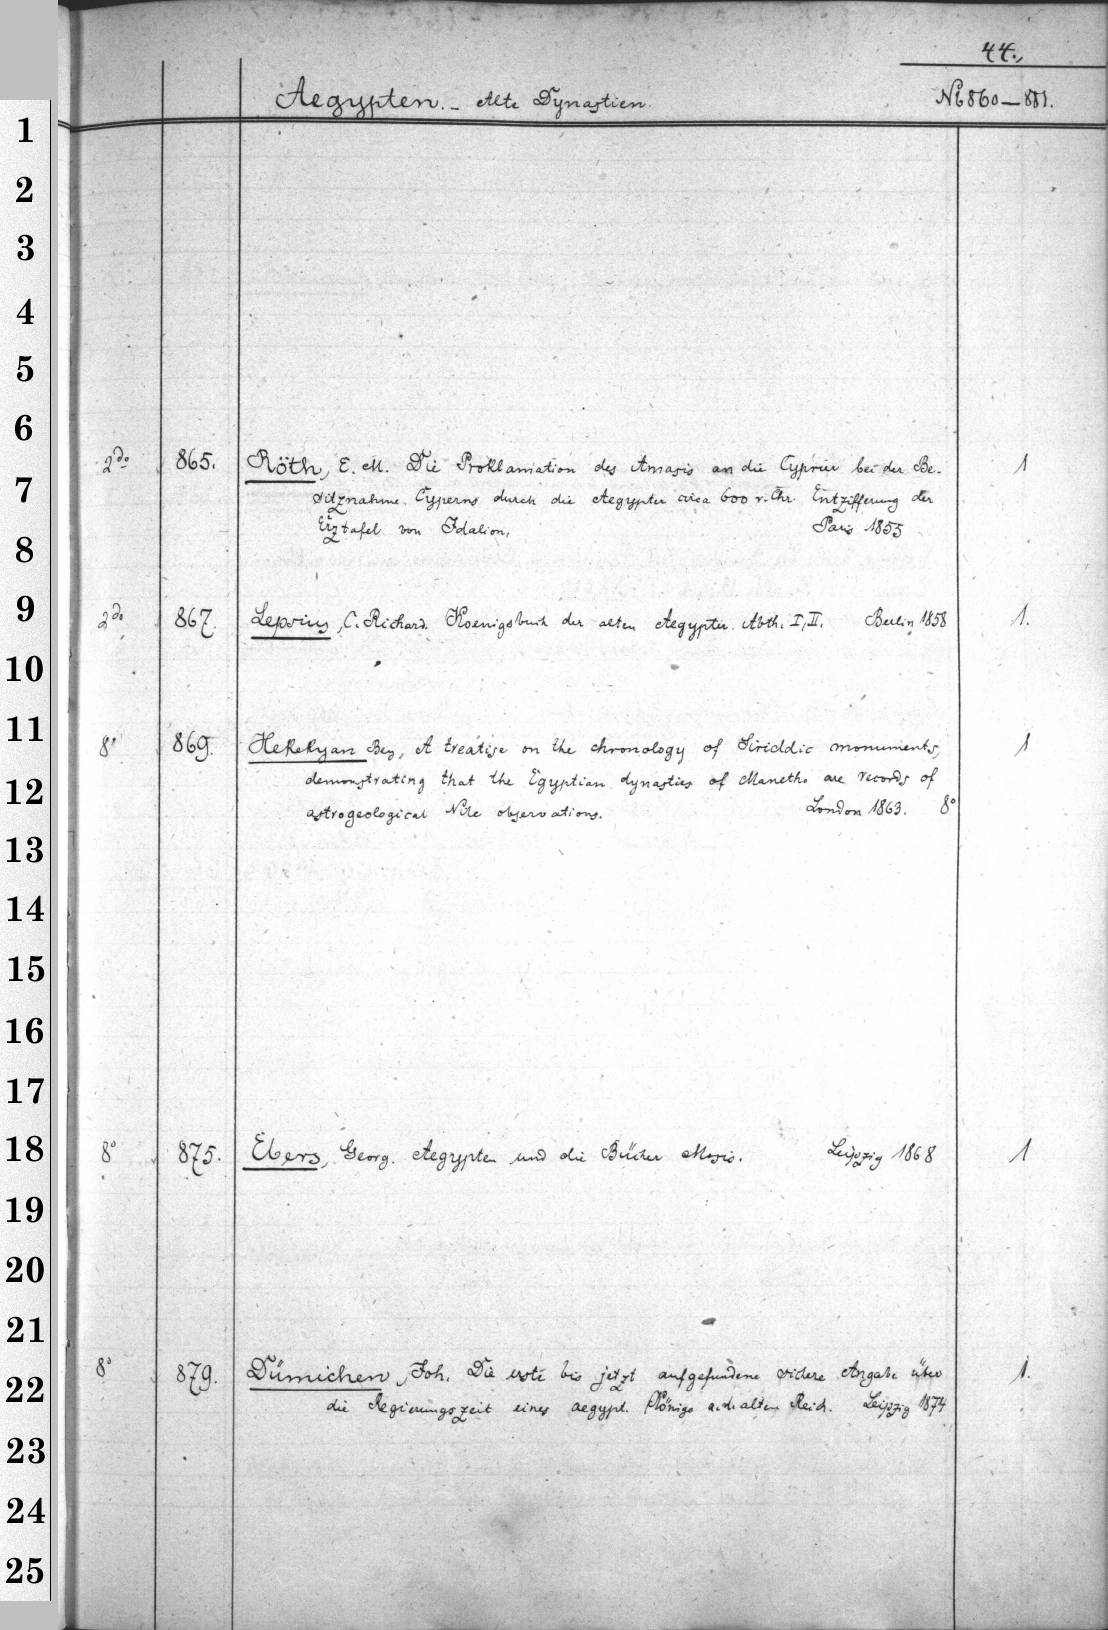 44.,
Aegypten. - Alte Dynastien.
No 860-881.
1
2
3
4
5
6
2do 865. Röth, E. M. Die Proklamation des Amasis an die Cyprier bei der Be- 1
7
sitznahme Cyperns durch die Aegypter circa 600 v. Chr. Entzifferung der
Erztafel von Idalion, Paris 1855
8
9
2do 867. Lepsius, C. Richard. Koenigsbuch der alten Aegypter. Abth. I, II. Berlin 1858 1.
10
11
8° 869. Hekekyan Bey, A treatise on the chronology of Siriadic monuments, 1
demonstrating that the Egyptian dynasties of Manetho are records of
12
astrogeological Nile observations. London 1863. 8°
13
14
15
16
17
18
8° 875. Ebers, Georg. Aegypten und die Bücher Mosis. Leipzig 1868 1
19
20
21
8° 879. Dümichen, Joh. Die erste bis jetzt aufgefundene sichere Angabe über 1.
22
die Regierungszeit eines aegypt. Königs a. d. alten Reich. Leipzig 1874
23
24
25